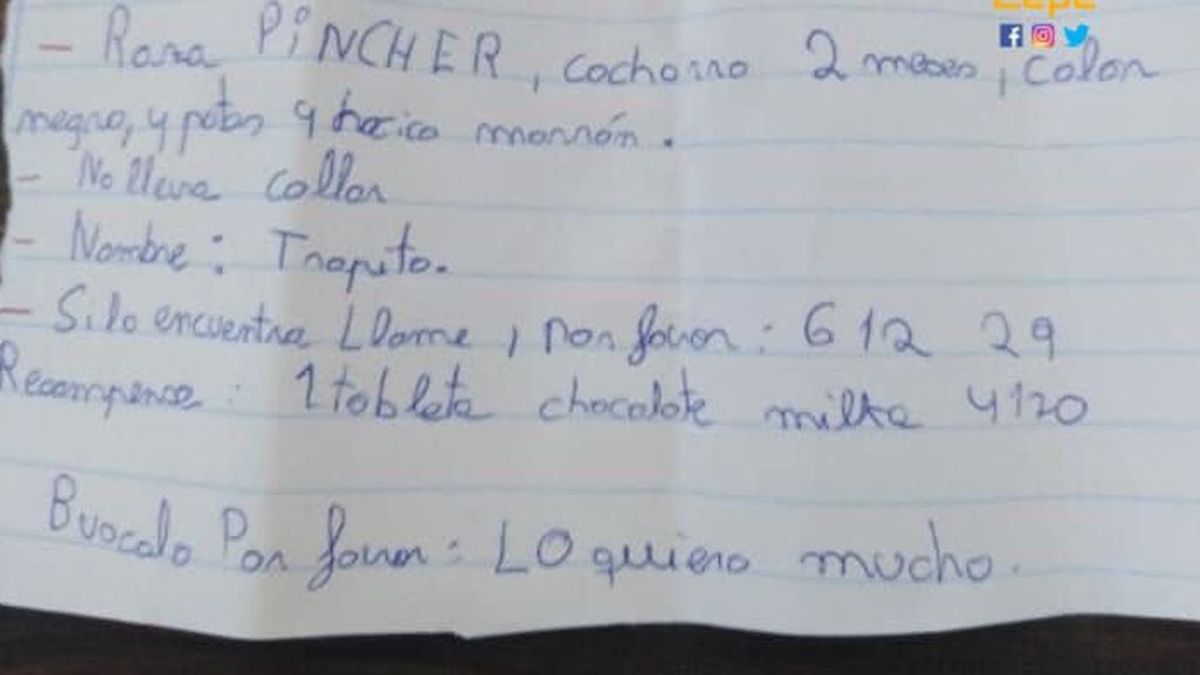 - Raza PINCHER, cachorro 2 meses, color
negro, y patas y hocico marrón.
- No lleva collar
- Nombre: Trapito.
- Si lo encuentra LLame, por favor: 612 29
Recompensa: 1 tableta chocolate milka y 120
Buscalo Por favor: LO quiero mucho.